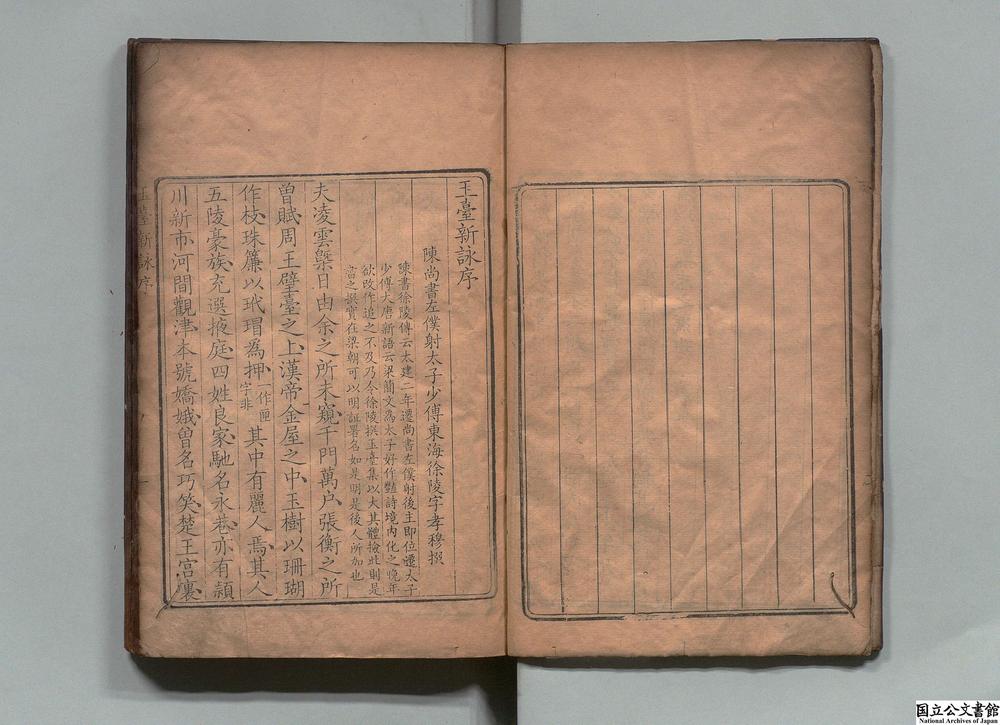 玉臺新詠序
陳尚書左僕射太子少傅東海徐陵字孝穆撰
陳書徐陵傳云太建二年遷尚書左僕射後主即位遷太子
少傅大唐新語云梁簡文為太子好作豔詩境內化之晚年
欲改作追之不及乃令徐陵撰玉臺集以大其體撿此則是
書之撰實在梁朝可以明証署名如是明是後人所加也
夫凌雲槩日由余之所未窺千門萬户張衡之所
曾賦周王璧臺之上漢帝金屋之中玉樹以珊瑚
作枝珠簾以玳瑁為押一作匣字非其中有麗人焉其人
五陵豪族充選掖庭四姓良家馳名永巷亦有頴
川新市河間觀津本號嬌娥曾名巧笑楚王宫裏
玉臺新詠序
国立公文書館
National Archives of Japan